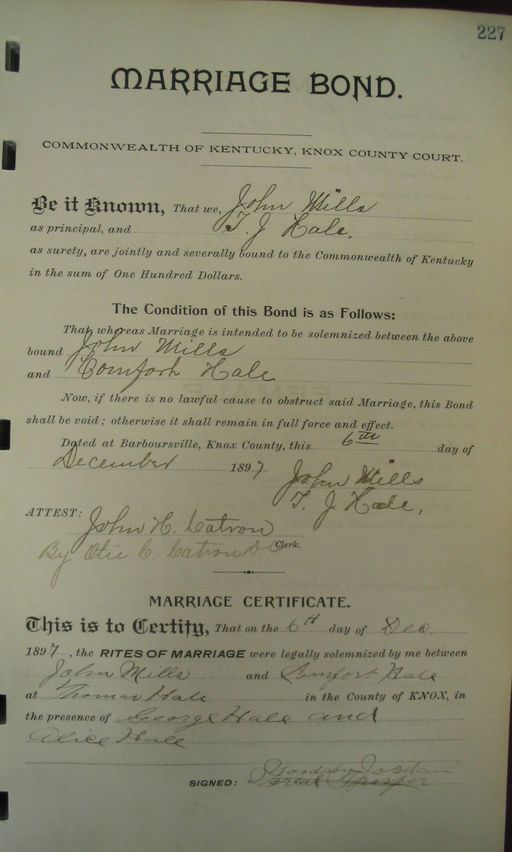 227
MARRIAGE BOND.
COMMONWEALTH OF KENTUCKY, KNOX COUNTY COURT.
Be it Known, That we, John Mills
as principal, and T. J Hale,
as surety, are jointly and severally bound to the Commonwealth of Kentucky
in the sum of One Hundred Dollars.
The Condition of this Bond is as Follows:
That whereas Marriage is intended to be solemnized between the above
bound John Mills
and Comfort Hale
Now, if there is no lawful cause to obstruct said Marriage, this Bond
shall be void; otherwise it shall remain in full force and effect.
Dated at Barboursville, Knox County, this 6th day of
December 1897
John Mills
T. J Hale,
ATTEST: John H. Catron
By Otie C. Catron D.C. Clerk.
MARRIAGE CERTIFICATE.
This is to Certify, That on the 6th day of Dec.
1897, the RITES OF MARRIAGE were legally solemnized by me between
John Mills and Comfort Hale
at Thomas Hale in the County of KNOX, in
the presence of George Hale and
Alice Hale
SIGNED: Jordan